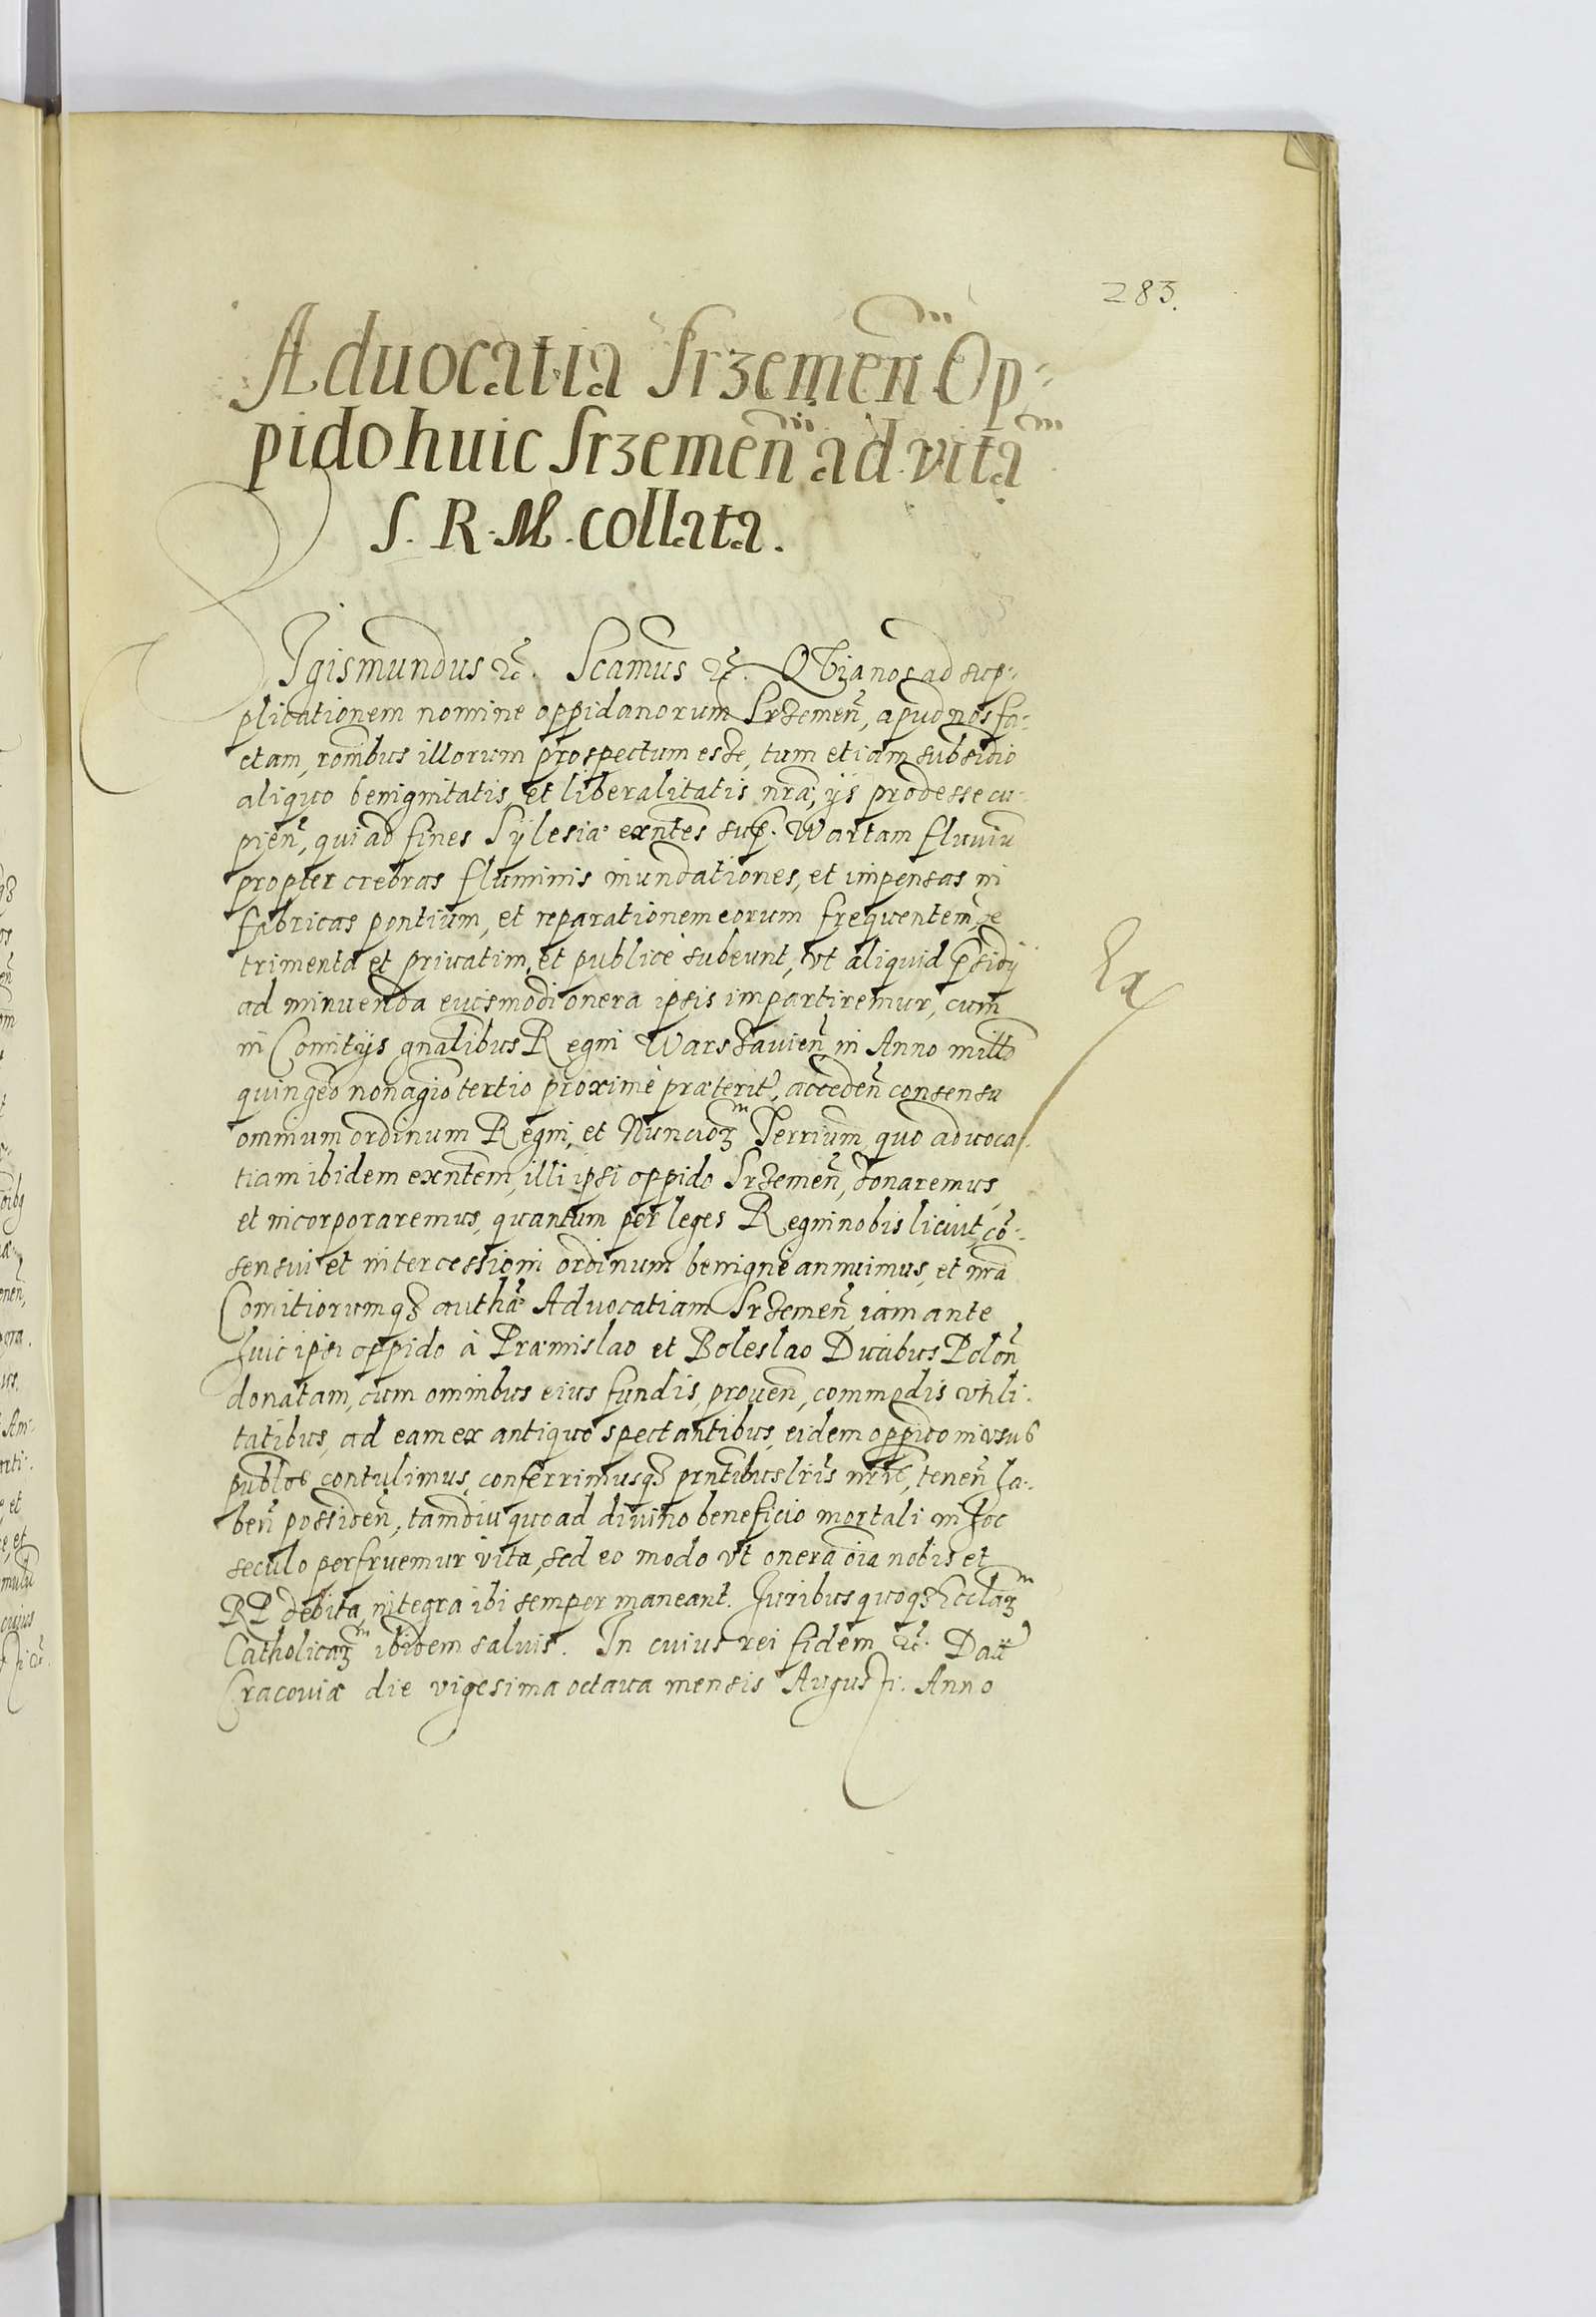 283.
Aduocatia Srzemeñ Op-
pido huic Srzemeñ ad vitã
S. R. M. collata.
Sigismundus &c. Scamus &c. Qvia nos ad sup-
plicationem nomine oppidanorum Srzemeñ, apud nos fa-
ctam, rõnibus illorum prospectum esse, tum etiam subsidio
aliquo benignitatis et liberalitatis nrã, ijs prodesse cu-
pieñ, qui ad fines Sylesiæ exñtes sup. Wartam fluviũ
propter crebras fluminis inundationes, et impensas in
fabricas pontium, et reparationem eorum frequentem, de
trimenta et privatim, et publicè subeunt, vt aliquid p̃sidij
ad minuenda eiusmodi onera ipsis impartiremur, cum
in Comitijs gñalibus Regni Warszavieñ in Anno millo
quingeõ nonagiõ tertio proximè præterit, accedeñ consensu
omnium ordinum Regni, et Nuncioꝝ Terrium, quo aduoca-
tiam ibidem exñtem, illi ipsi oppido Srzemeñ, donaremus,
et incorporaremus, quantum per leges Regni nobis licuit, cõ-
sensui et intercessioni ordinum benignè annuimus, et nrã
Comitiorumqꝫ authã Advocatiam Srzemeñ, iam ante
huic ipsi oppido à Præmislao et Boleslao Ducibus Poloñ
donatam, cum omnibus eius fundis, proueñ, commodis vtili-
tatibus, ad eam ex antiquo spectantibus, eidem oppido in vsus
publos contulimus, conferrimusqꝫ prñtibus lrĩs nrĩs, teneñ ha-
beñ possideñ, tamdiu quoad divino beneficio mortali in hoc
seculo perfruemur vita, sed eo modo vt onera oĩa nobis et
RP debita, integra ibi semper maneant. Juribus quoqꝫ Ecclaꝝ
Catholicaꝝ ibidem salvis. In cuius rei fidem &c. Dat
Cracoviæ die vigesima octaua mensis Augusti. Anno